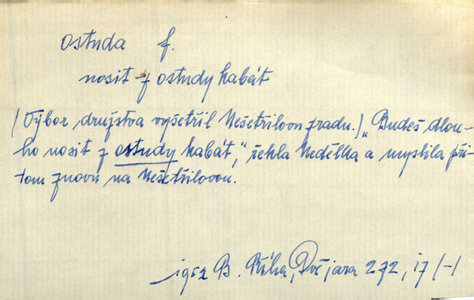 ostuda f.
nosit z ostudy kabát
(Výbor družstva vyšetřil Nešetřilovu zradu.) „Budeš dlou-
ho nosit z ostudy kabát,“ řekla Nedělka a myslila při-
tom znovu na Nešetřilovou.
B. Říha, Dvě jara 272, 17/-1